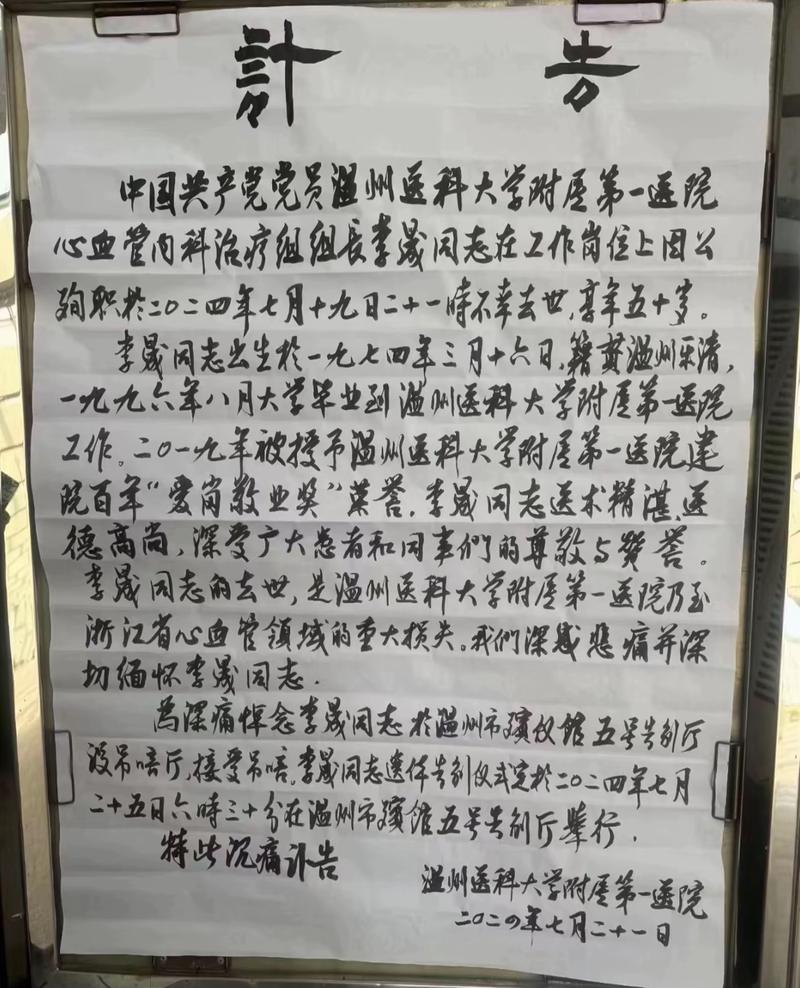 訃告
中国共产党党员温州医科大学附属第一医院
心血管内科治疗组组长李晟同志在工作岗位上因公
殉职於二〇二四年七月十九日二十一時不幸去世,享年五十岁。
李晟同志出生於一九七四年三月十六日,籍贯温州乐清,
一九九六年八月大学毕业到温州医科大学附属第一医院
工作。二〇一九年被授予温州医科大学附属第一医院建
院百年“爱岗敬业奖”荣誉。李晟同志医术精湛,医
德高尚,深受广大患者和同事們的尊敬与赞誉。
李晟同志的去世,是温州医科大学附属第一医院乃至
浙江省心血管领域的重大损失。我們深感悲痛并深
切缅怀李晟同志.
為深痛悼念李晟同志於温州市殡仪館五号告别厅
设吊唁厅,接受吊唁.李晟同志遗体告别仪式定於二〇二四年七月
二十五日六時三十分在温州市殡館五号告别厅舉行.
特此沉痛讣告
温州医科大学附属第一医院
二〇二四年七月二十一日